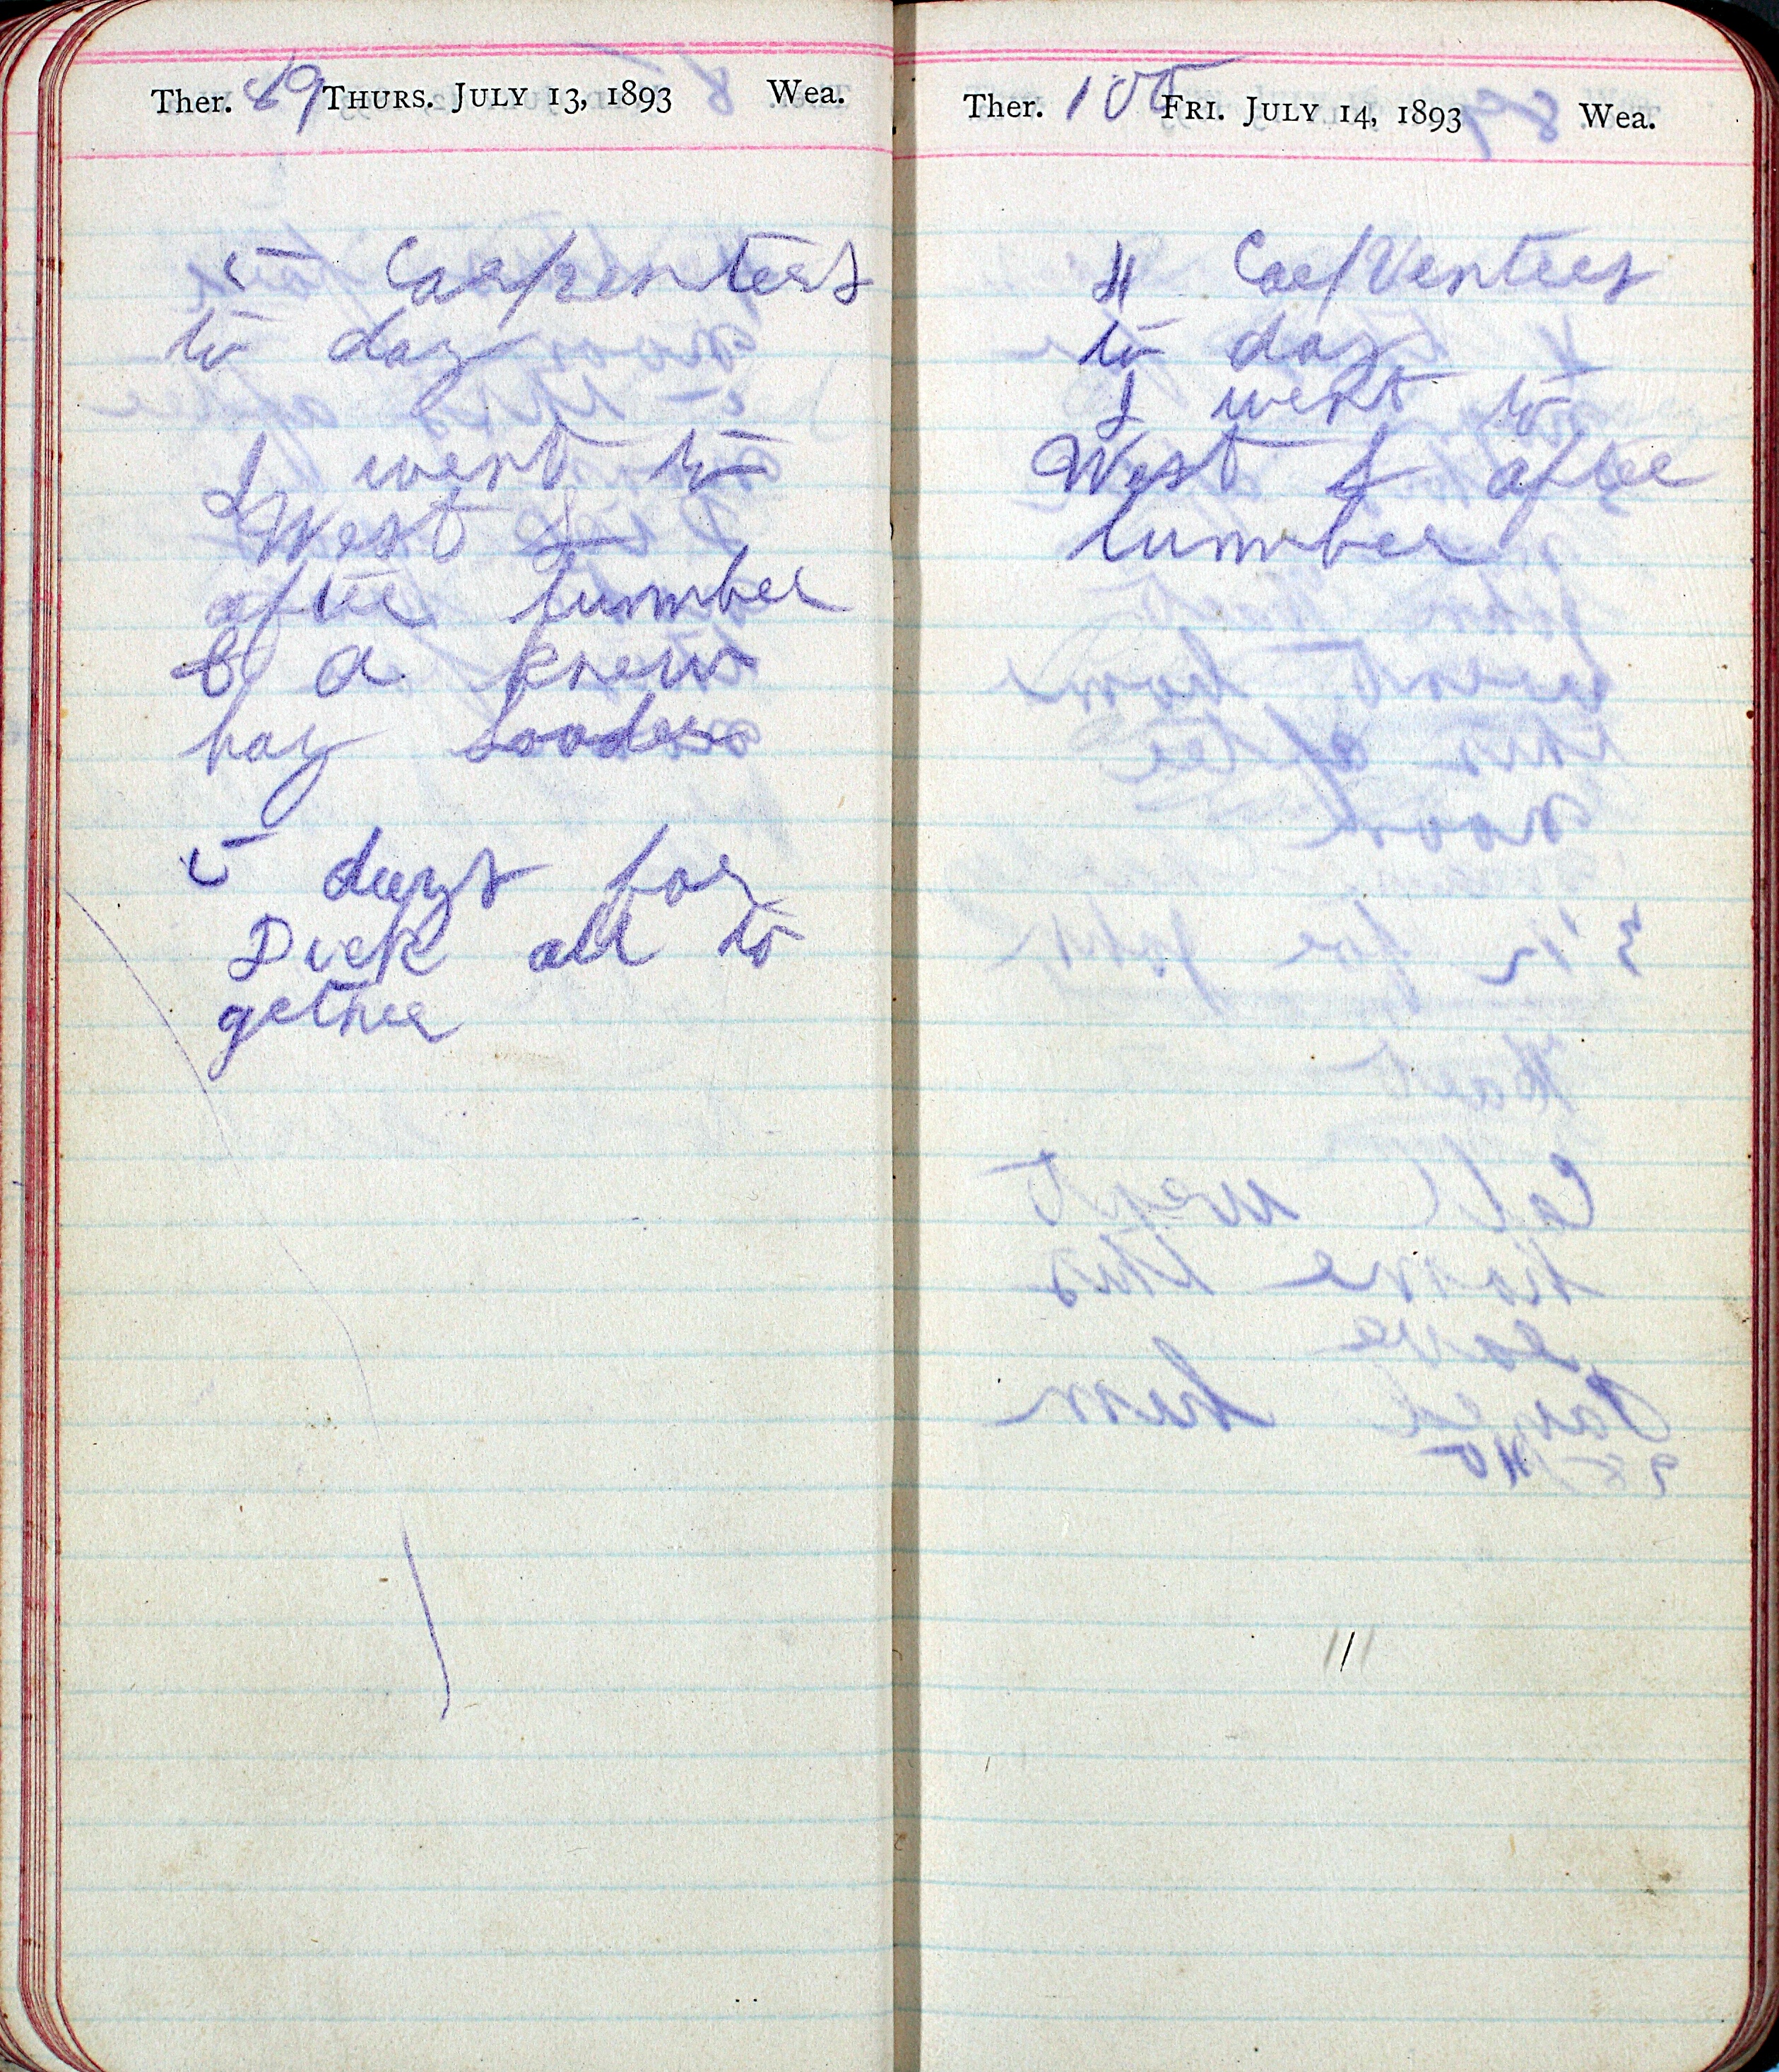 Ther. 89 THURS. JULY 13, 1893 Wea.
5 Carpenters
to day
I went to
West f
after lummber
& a knew
hay Loader
5 days for
Dick all to
gether
Ther. 100 FRI. JULY 14, 1893 Wea.
4 Carpenters
to day
I went to
West f after
lummber